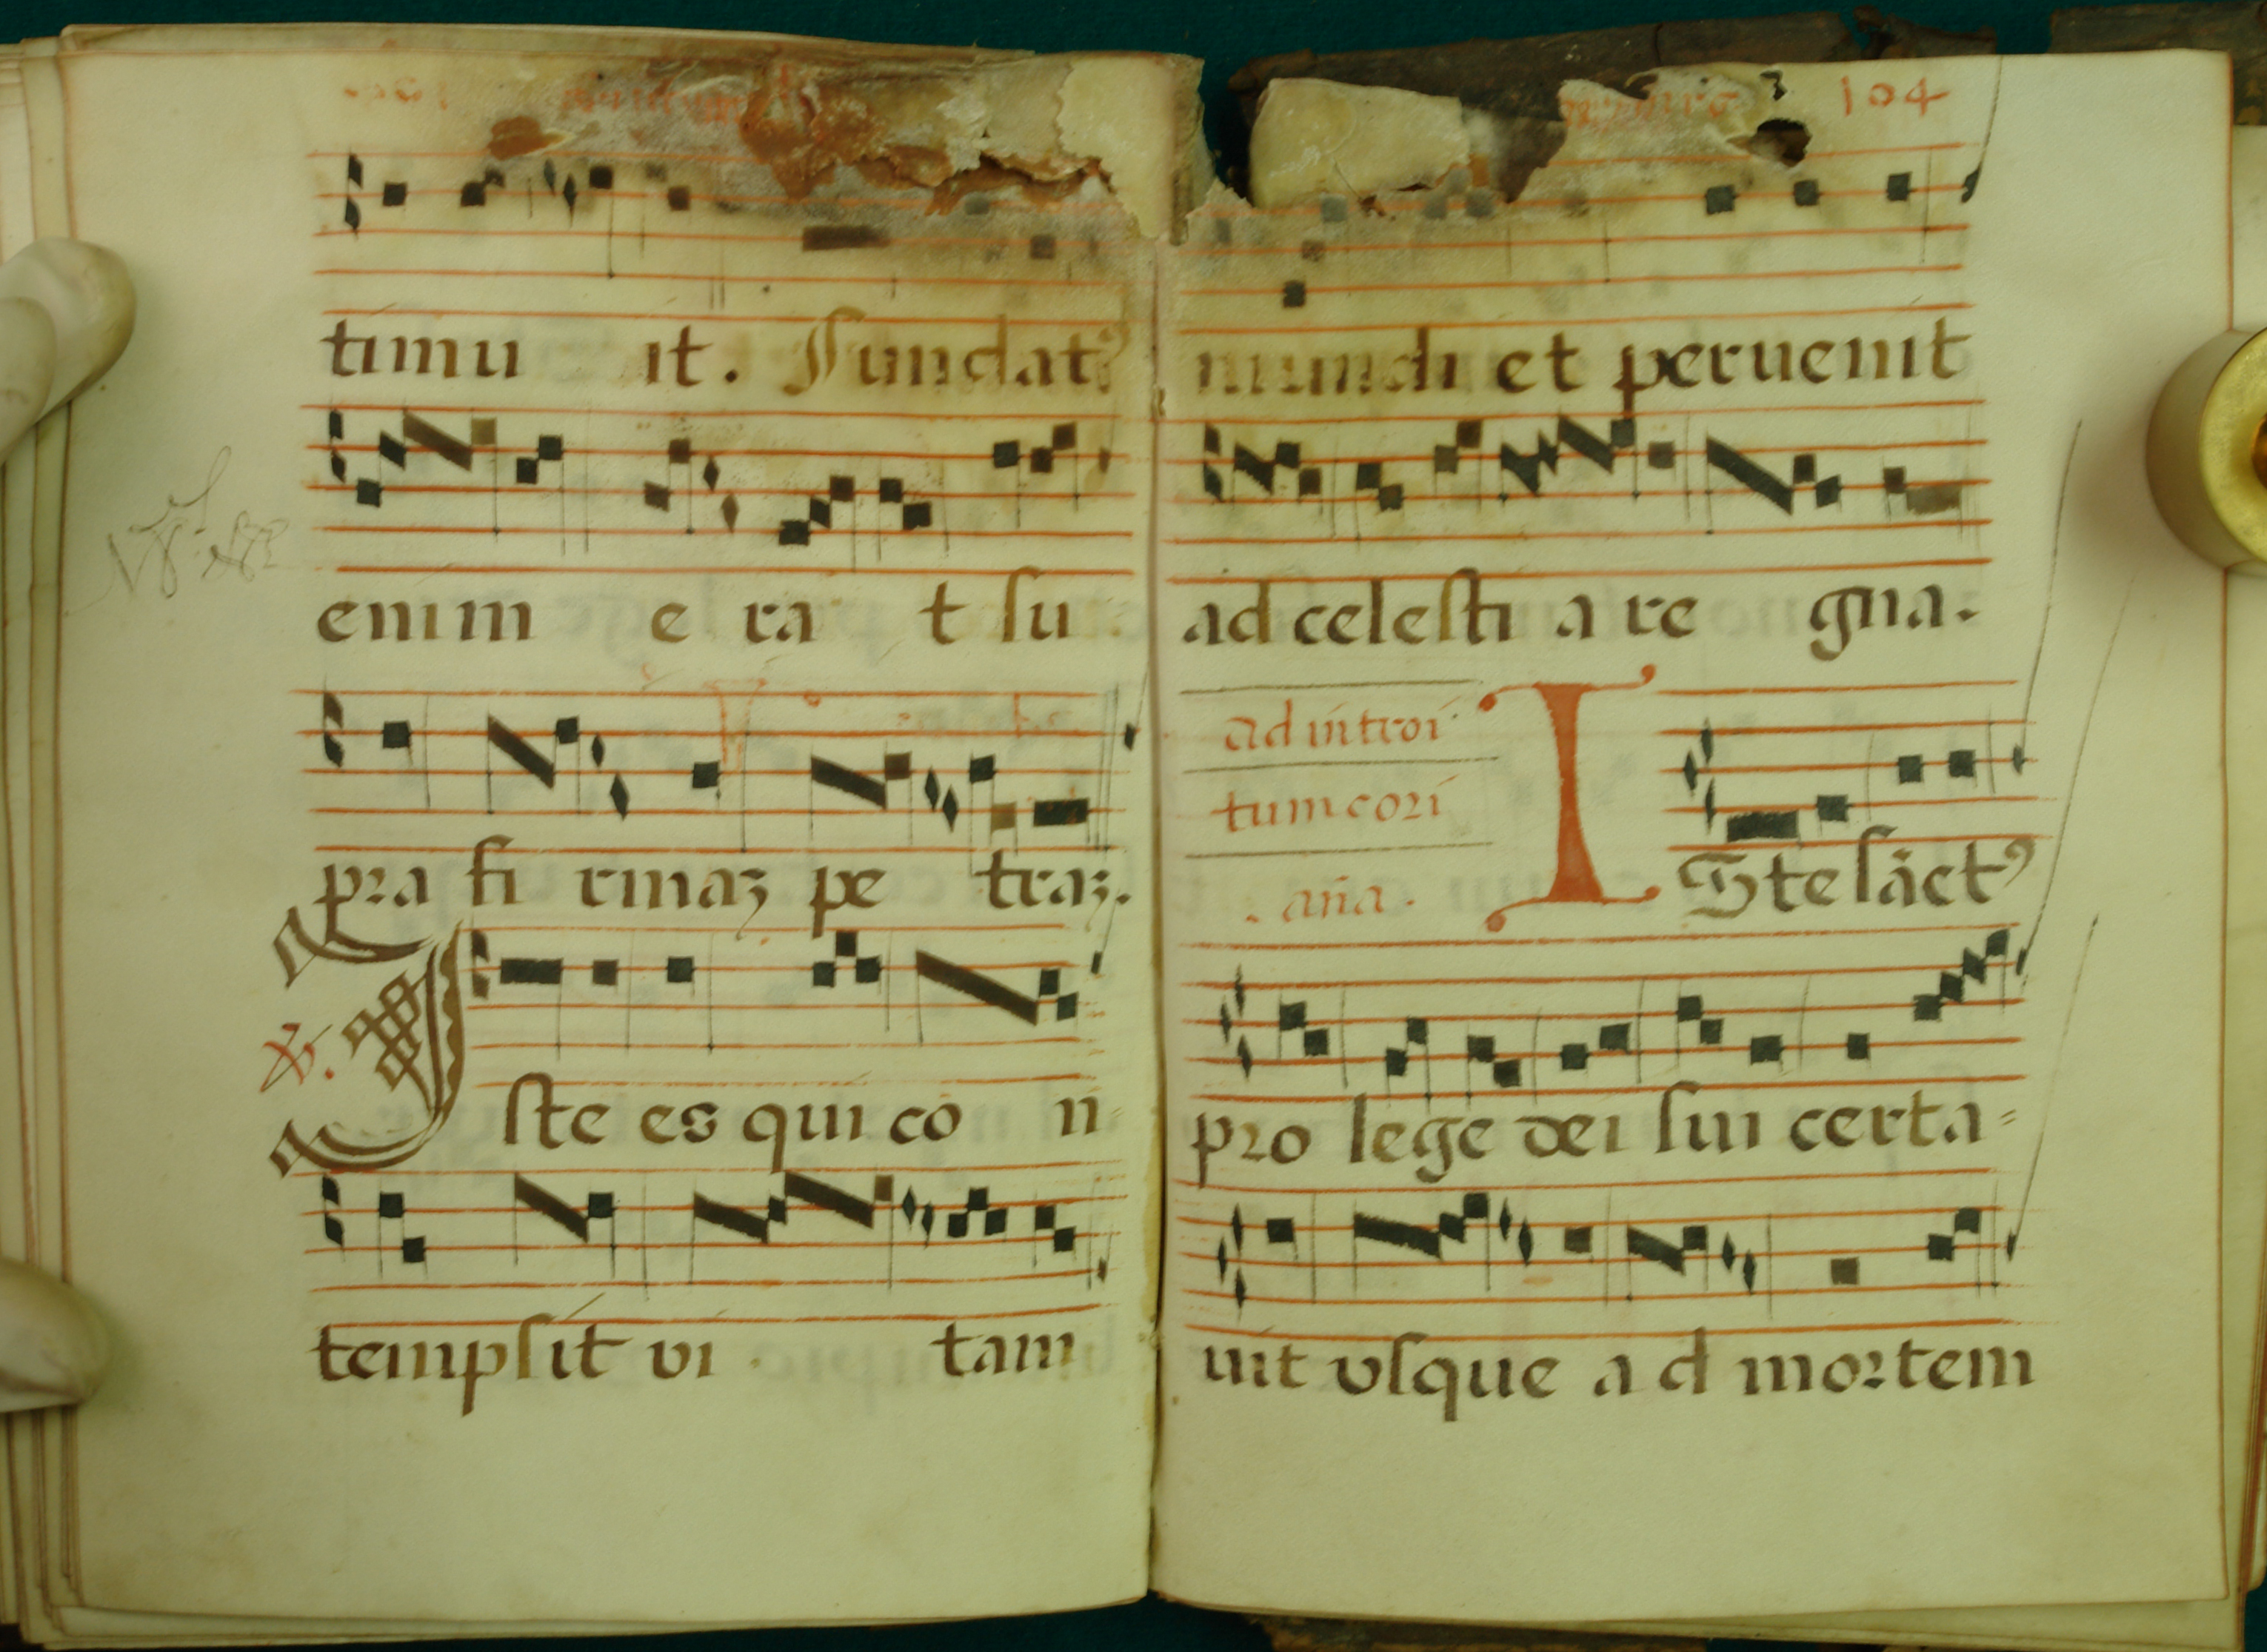 timu it. Fundat⁹
enim e ra t ſu
pra fi rmaʒ pe traʒ.
℣. Iſte es qui co n-
tempſit vi tam
104
mundi et peruenit
ad celeſti a re gna.
ad introi
tum cori
.ana.
ISte ſāct⁹
pro lege dei ſui certa-
uit vſque a d mortem